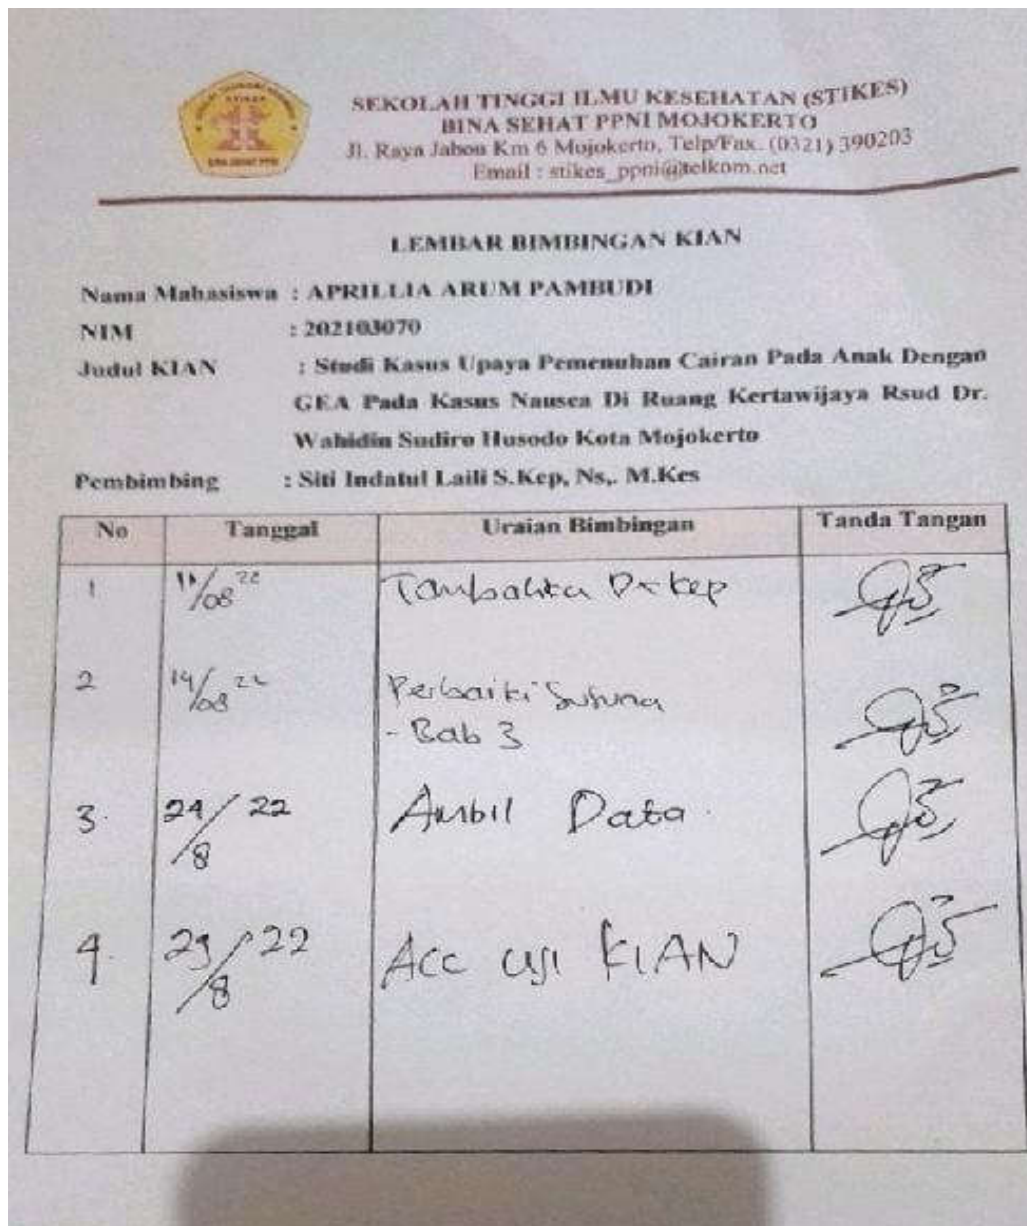 SEKOLAH TINGGI ILMU KESEHATAN (STIKES)
BINA SEHAT PPNI MOJOKERTO
Jl. Raya Jabon Km 6 Mojokerto, Telp/Fax. (0321) 390203
Email : stikes_ppni@telkom.net
LEMBAR BIMBINGAN KIAN
Nama Mahasiswa : APRILLIA ARUM PAMBUDI
NIM : 202103070
Judul KIAN : Studi Kasus Upaya Pemenuhan Cairan Pada Anak Dengan
GEA Pada Kasus Nausea Di Ruang Kertawijaya Rsud Dr.
Wahidin Sudiro Husodo Kota Mojokerto
Pembimbing : Siti Indatul Laili S.Kep, Ns,. M.Kes
No Tanggal Uraian Bimbingan Tanda Tangan
1 11/08 22
2 14/08 22 Perbaiki
- Bab 3
3. 24/8 22 Ambil Data.
4. 29/8 22 Acc uji KIAN